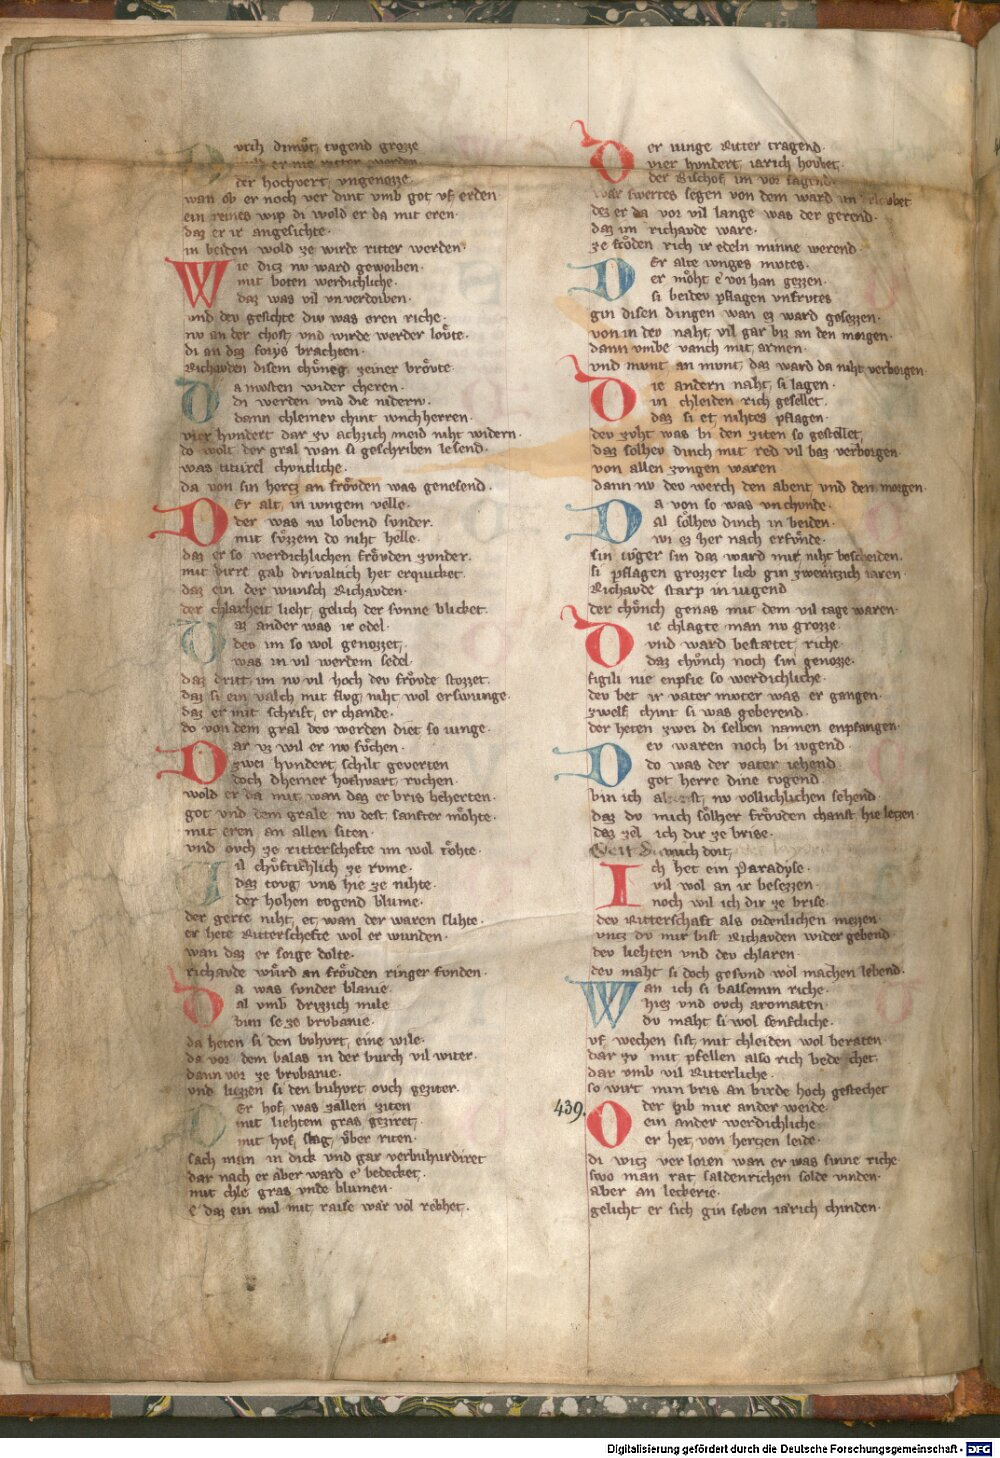 Durch dimuͦt tvgend grozze
er nie ritter worden
der hochvert vngenozze.
wan ob er noch ver dint vmb got vf erden.
ein reines wip di wold er da mit eren.
daz er ir angesichte.
in beiden wold ze wirde ritter werden.
Wie ditz nv ward geworben.
mit boten werdichliche.
daz was vil vnverdorben.
vnd dev geschte div was eren riche.
nv an der chost vnd wirde werder lovte.
di an daz forys brachten.
Richavden disem chvͤneg zeiner brovte.
Da mvsten wider cheren.
di werden vnd die nidern.
dann chleinev chint vnchherren.
vier hvndert dar zv achzich meid niht widern.
do wolt der gral wan si geschriben lesend.
was titurel chvntliche.
da von sin hertz an froͮden was genesend.
Der alt in ivngem velle.
der was nv lobend svnder.
mit svͤzzem do niht helle.
daz er so werdichlichen froͮden zvnder.
mit dirre gab drivaltich het erquicket.
daz ein der wunsch Richavden.
der chlarheit lieht gelich der svnne blicket.
Daz ander was ir edel.
dev im so wol genozzet.
was in vil werdem sedel
daz dritt im nv vil hoch dev froͮde stozzet.
daz si ein valch mit flvg niht wol erswunge.
daz er mit schrift er chande.
do von dem gral dev werden diet so ivnge.
Dar vz wil er nv svͦchen.
zwei hvndert schilt geverten
doch dheiner hochvart rvchen.
wold er da mit wan daz er bris beherten.
got vnd dem grale nv dest sanfter moͤhte.
mit eren an allen siten.
vnd ovch ze ritterschefte im wol toͤhte.
Vil chvͤstichlich ze rvme.
daz tovg vns hie ze nihte.
der hohen tvgend blvme.
der gerte niht et wan der waren slihte.
er hete Ritterschefte wol er wunden.
wan daz er sorge dolte.
richavde wuͤrd an froͮden ringer fvnden.
Da was svnder blanie.
al vmb drizzich mile
bvn se ze brvbanie.
da heten si den bvhvrt eine wile.
da vor dem balas in der bvrch vil witer.
dann vor ze brvbanie.
vnd liezzen si den buhvrt ovch geziter.
Der hof was zallen ziten
mit liehtem gras geziret.
mit hvf slag vͤber riten.
sach man in dick vnd gar verbuhurdiret
dar nach er aber ward e bedecket.
mit chle gras vnde blumen.
e daz ein mil mit raise war vol rebhet.
Der ivnge Ritter tragend.
vier hvndert iarich hovbet.
der Bischof im vor sagend.
war swertes segen von dem ward im
dez er da vor vil lange was der gerend.
daz im richavde ware.
ze froͤden rich ir edeln minne werend.
Der alte ivnges mvtes.
er moͤht e voi han gezzen.
si beidev pflagen vnfrvtes
gin disen dingen wan ez ward gesezzen.
von in dev naht vil gar biz an den morgen.
dann vmbe vanch mit armen.
vnd mvnt an mvnt daz ward da niht verborgen
Die andern naht si lagen.
in chleiden rich gesellet.
daz si et nihtes pflagen.
dev zvht was bi den ziten so gestellet
daz solhev dinch mit red vil baz verborgen.
von allen zvngen waren
dann nv dev werch den abent vnd den morgen
Da von so was vnchvnde.
al soͤlhev dinch in beiden.
wi ez her nach erfvnde.
sin ivͤger sin daz ward mir niht bescheiden.
si pflagen grozzer lieb gin zweintzich iaren.
Richavde starp in ivgend
der chvͤnch genas mit dem vil tage waren.
Die chlagte man nv grozze.
vnd ward bestætet riche.
daz chvͤnch noch sin genozze.
sigili nie enpfie so werdichliche.
dev bet ir vater mvter was er gangen.
zwelf chint si was geberend.
der heten zwei di selben namen enpfangen.
Dev waren noch bi ivgend.
do was der vater iehend.
got herre dine tvgend
bin ich nv vollichlichen sehend.
daz dv mich soͤlher froͤvden chanst hie lezzen.
daz zel ich dir ze brise.
mich dort
Ich het ein Paradyse.
vil wol an ir besezzen.
noch wil ich dir ze brise.
dev Ritterschaft als ordenlichen mezzen.
vntz dv mir bist Richavden wider gebend
dev liehten vnd dev chlaren.
dev maht si doch gesvnd wol machen lebend.
Wan ich si balsemm riche.
hiez vnd ovch aromaten.
dv maht si wol senftliche.
vf wechen sist mit chleiden wol beraten.
dar zv mit pfellen also rich bede chet.
dar vmb vil Ritterliche.
so wirt min bris an wirde hoch gestechet
439.
Oder gib mir ander weide.
ein ander werdichliche
er het von hertzen leide.
di witz ver loren wan er was sinne riche
swo man rat saldenrichen solde vinden.
aber an leckerie.
gelicht er sich gin seben iarich chinden.
Digitalisierung gefördert durch die Deutsche Forschungsgemeinschaft - DFG